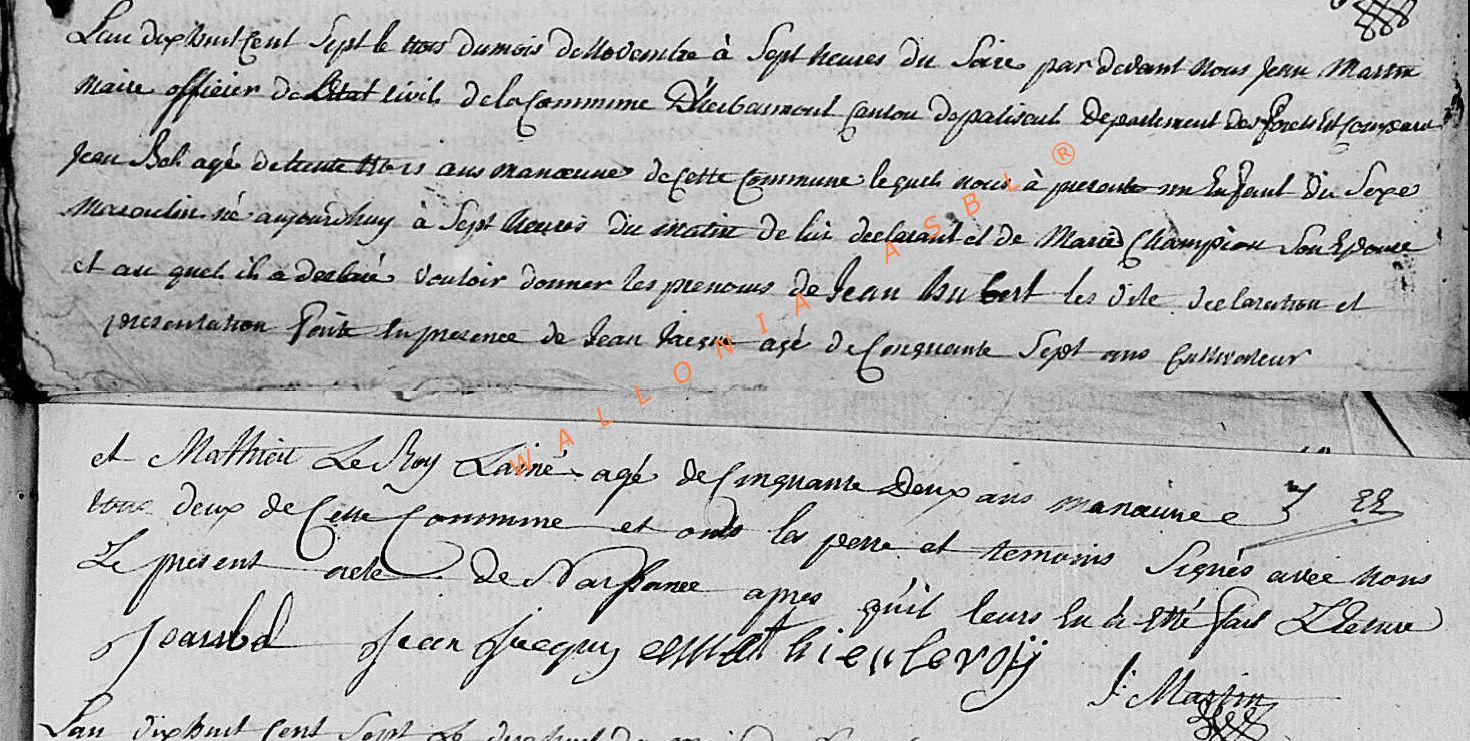 Lan dix huit Cent Sept le trois du mois de Novembre à Sept heures du Soire par devant nous Jean Martin
Maire officier de Létat civil de la Commune D'herbaimont Canton de paliseul Département des forets Est Comparu
Jean agé de trente trois ans manœuvre de Cette Commune lequel nous à presenté un Enfant du Sexe
Masculin né aujourdhuy à Sept heures du matin de lui declarant et de Marie Champion Son Epouse
et au quel il a declaré vouloir donner les prenoms de Jean hubert les dite declaration et
presentation faite En presence de Jean Jacque agé de Cinquante Sept ans Cultivateur
et Mathieu Le Roy Lainé agé de Cinquante Deux ans manœuvre
tous deux de Cette Commune et onts les perre et temoins Signés avec nous
Le present acte de Naissance apres qu'il leurs En à Etté fait Lecture
Jean Jacques Mathieu leroy
J: Martin
Lan dix huit Cent Sept Le dix huit du mois de
WALLONIA ASBL ®